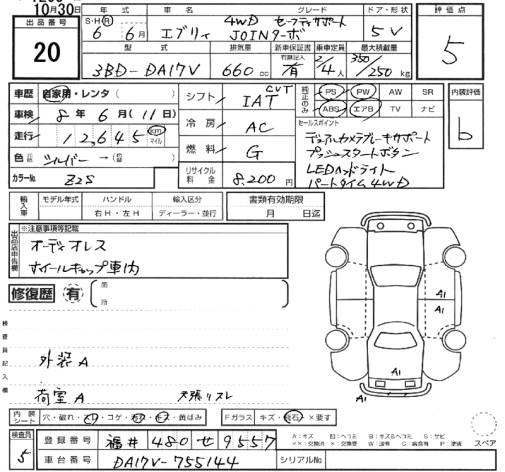 10月30日
出品番号
20
年式
S・H・R 6 6月
エブリィ
グレード
4WD セーフティサポート
JOINターボ
ドア・形状
5V
評価点
5
型式
3BD-DA17V
排気量
660cc
新車保証書
有
乗車定員
2/4人
最大積載量
350/250kg
車歴 自家用・レンタ( )
車検 8年6月(11日)
走行 12,645 km マイル
色 シルバー →( )
カラーNo. Z2S
シフト CVT IAT
冷房 AC
燃料 G
リサイクル料金 8,200円
純正のみ
PS PW AW SR
ABS エアB TV ナビ
内装評価
b
セールスポイント
デュアルカメラブレーキサポート
プッシュスタートボタン
LEDヘッドライト
パートタイム4WD
輸入車
モデル年式 ハンドル 輸入区分
右H・左H ディーラー・並行
書類有効期限
月 日迄
出品店申告欄
※注意事項等記載
オーディオレス
ホイールキャップ車内
修復歴 有
箇所
検査員記入欄
外装A
荷室A 天張リスレ
A1
A1
A1
内装シート 穴・破れ・スレ・コゲ・汚れ・キズ・黄ばみ
Fガラス キズ・飛石・×要す
スペア
検査員
5
登録番号 福井 480 せ 9557
車台番号 DA17V-755144
シリアルNo.